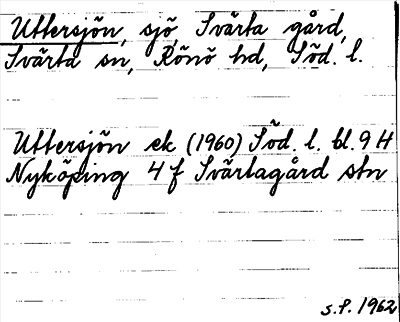 Uttersjön, sjö, Svärta gård,
Svärta sn, Rönö hd, Söd. l.
Uttersjön ek (1960) Söd. l. bl. 94
Nyköping 4f Svärtagård stn
S.P. 1962